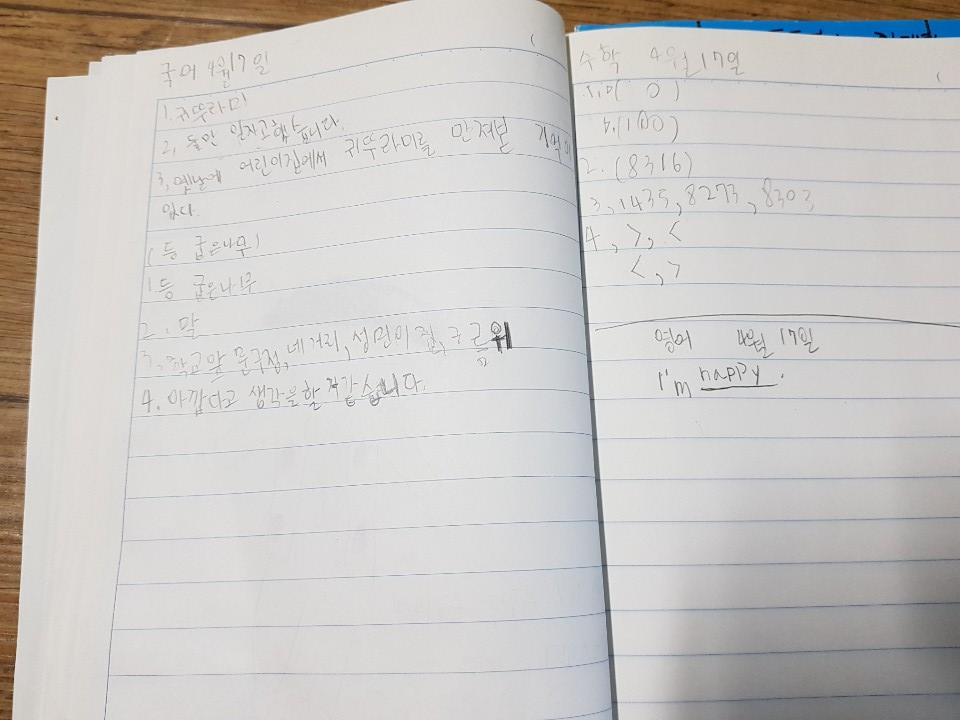 국어 4월 17일
1. 귀뚜라미
2, 동안 일지고 했습니다.
3, 옛날에 어린이집에써 귀뚜라미를 만져본 기억이
있다.
(등 굽은나무)
1 등 굽은나무
2. 말
3. 학교앞 문구점, 네거리, 성민이 집,
4. 아깝다고 생각을할 거같습니다.
수학 4월 17일
( 0 )
(100)
2. (8316)
3, 1435, 8273, 8303
4, >, <
<, >
영어 4월 17일
I'm happy.